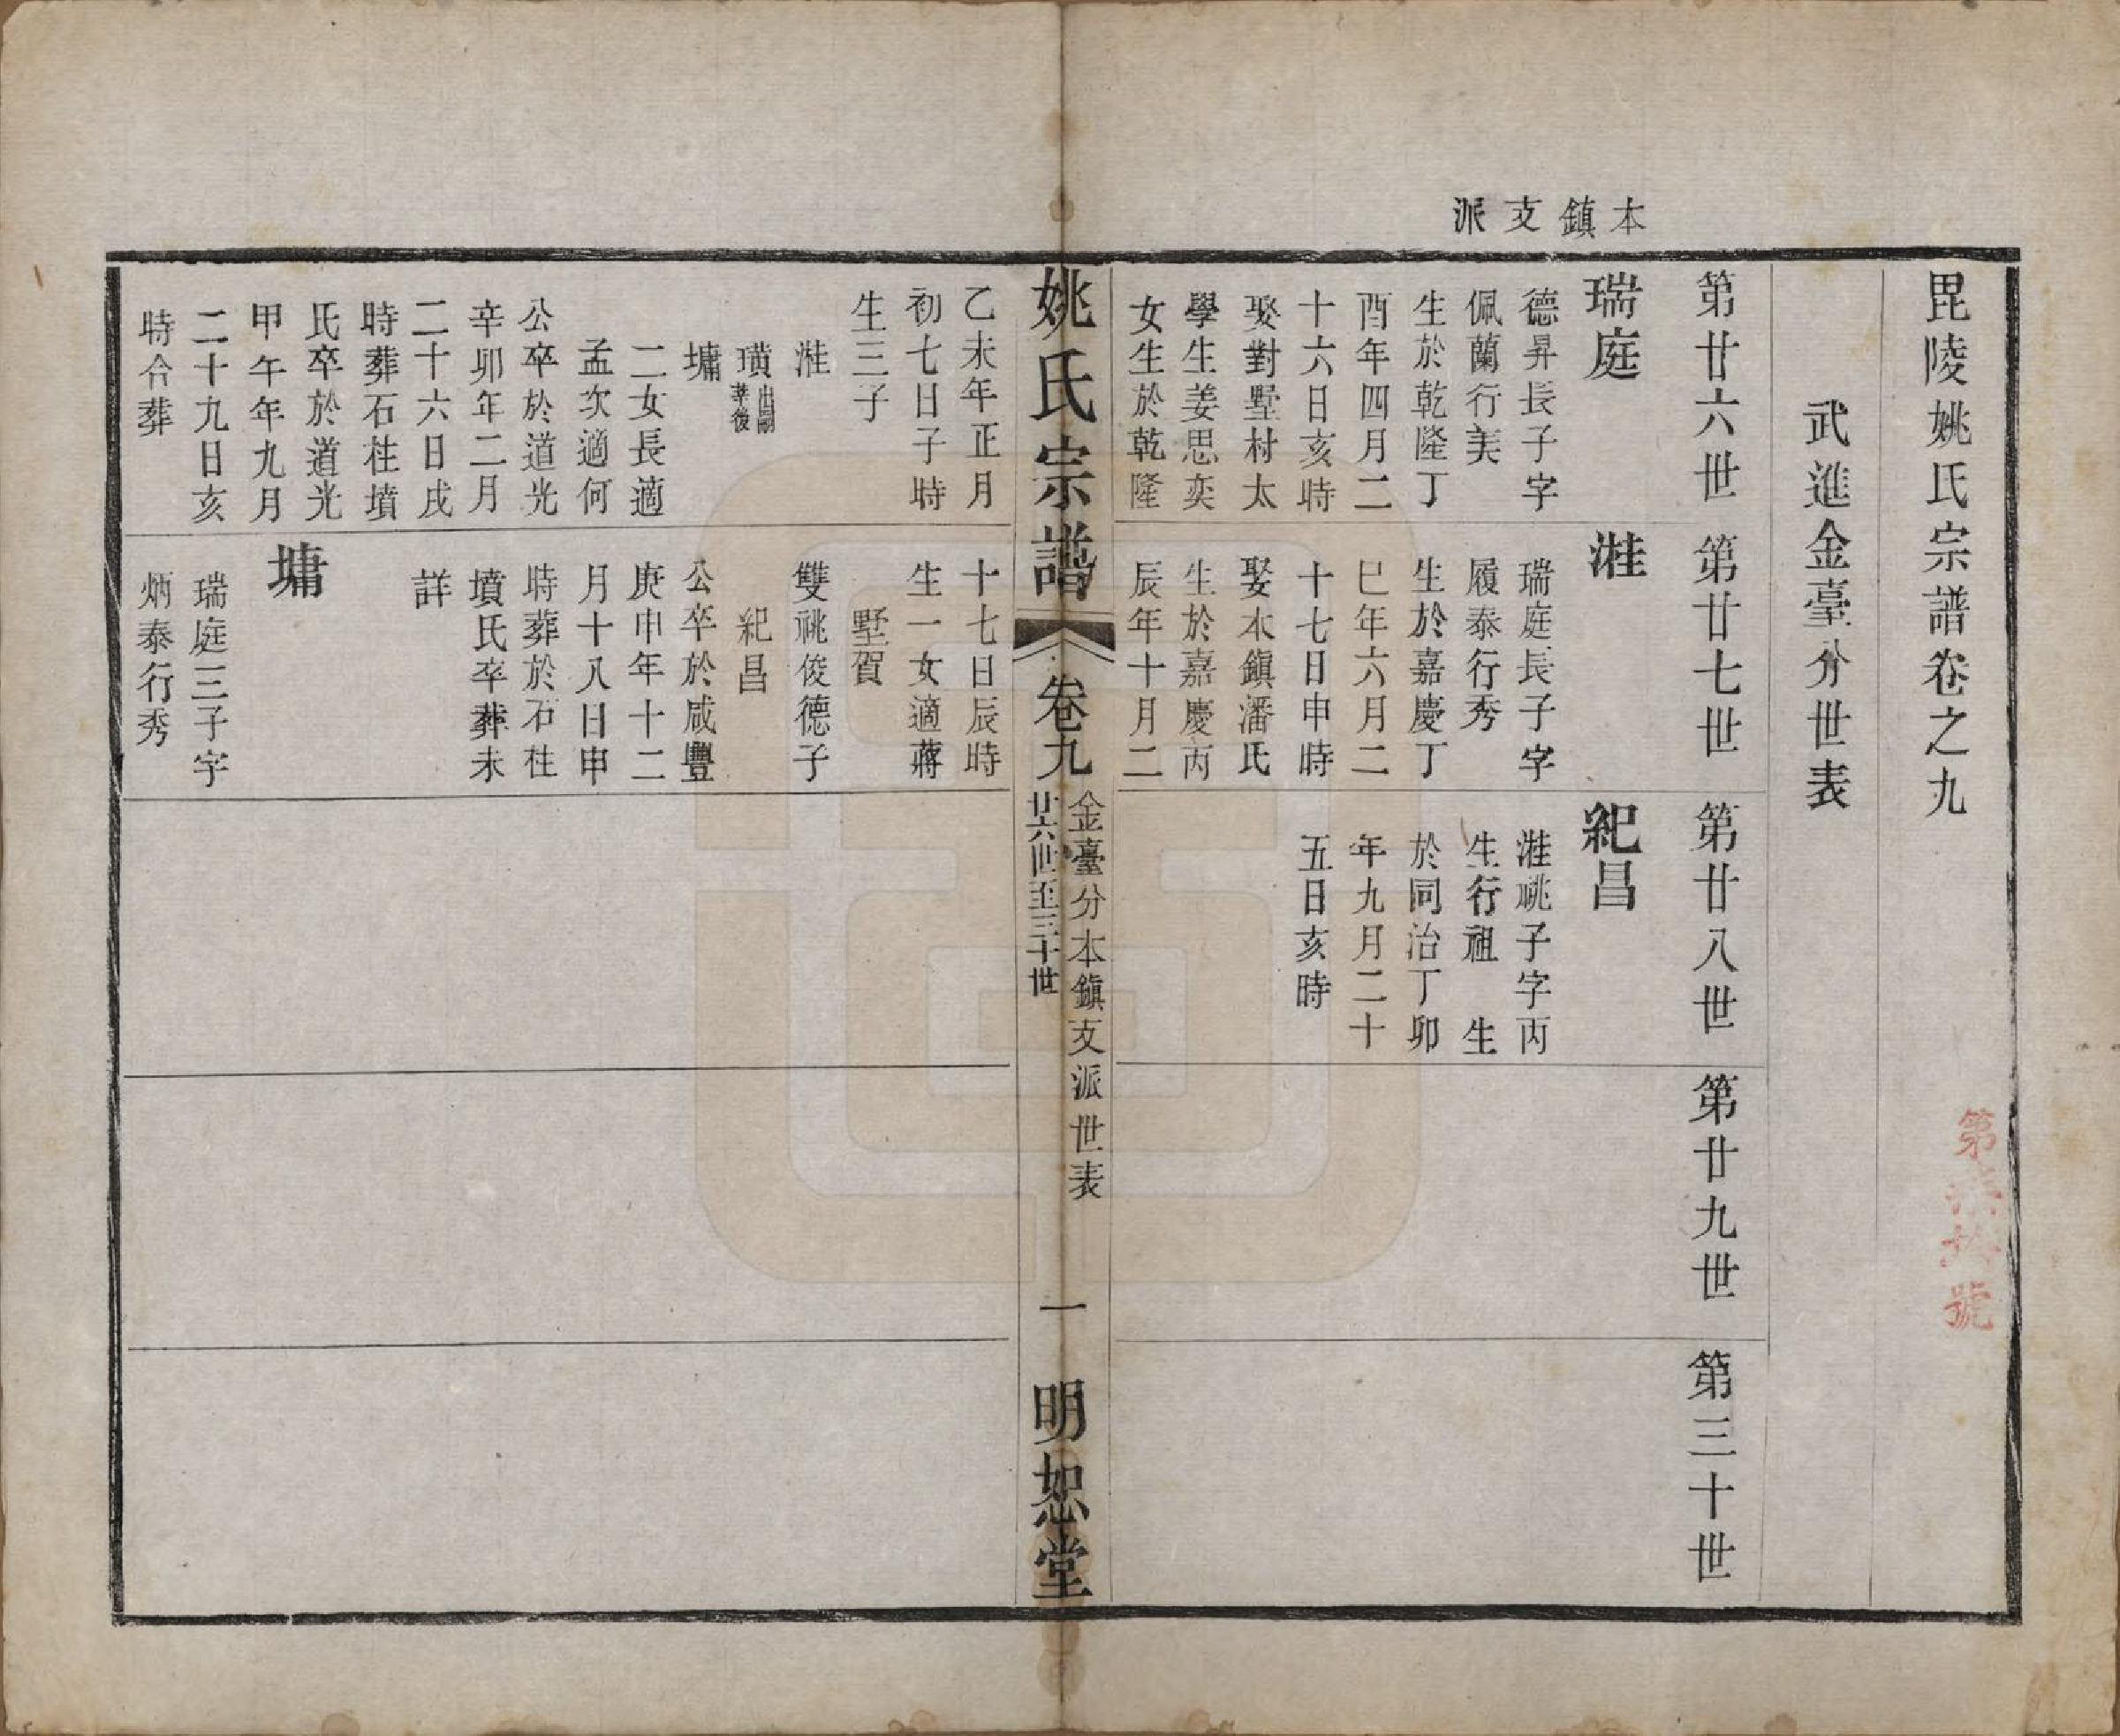 毘陵姚氏宗譜卷之九
武進金臺分世表
本鎮支派
第廿六世
第廿七世
第廿八世
第廿九世
第三十世
瑞庭
德昇長子字
佩蘭行美
生於乾隆丁
酉年四月二
十六日亥時
娶對墅村太
學生姜思奕
女生於乾隆
乙未年正月
初七日子時
生三子
溎
璜出嗣莘後
墉
二女長適
孟次適何
公卒於道光
辛卯年二月
二十六日戌
時葬石柱墳
氏卒於道光
甲午年九月
二十九日亥
時合葬
溎
瑞庭長子字
履泰行秀
生於嘉慶丁
巳年六月二
十七日申時
娶本鎮潘氏
生於嘉慶丙
辰年十月二
十七日辰時
生一女適蔣
墅賀
雙祧俊德子
紀昌
公卒於咸豐
庚申年十二
月十八日申
時葬於石柱
墳氏卒葬未
詳
墉
瑞庭三子字
炳泰行秀
紀昌
溎祧子字丙
生行祖 生
於同治丁卯
年九月二十
五日亥時
姚氏宗譜 卷九
金臺分本鎮支派世表
廿六世至三十世
一
明恕堂
第 號